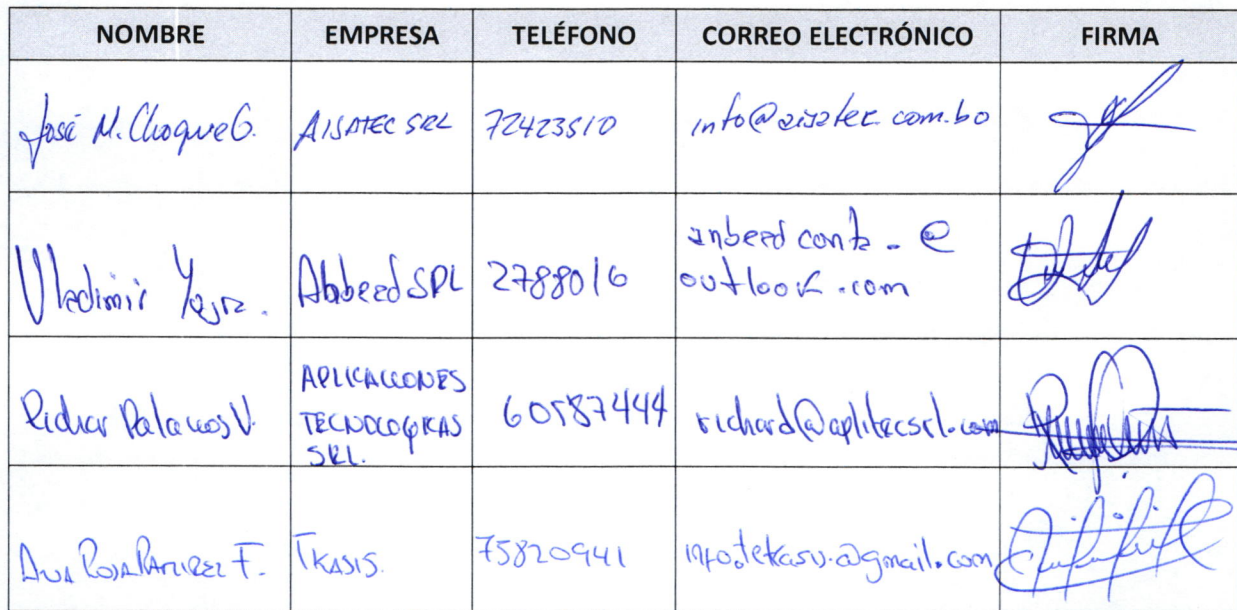 NOMBRE EMPRESA TELÉFONO CORREO ELECTRÓNICO FIRMA
José M. Choque G. AISATEC SRL 72423510 info@aisatec.com.bo
Vladimir Abbeed SRL 2788016 anbeed conta - @
outlook.com
Richar Palacios V. APLICACIONES
TECNOLOGICAS
SRL. 60587444 richard@aplitecsrl.com
Ana Rosa Ramirez F. TKASIS. 75820941